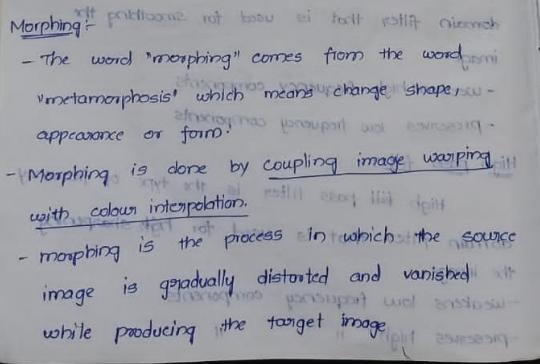 Morphing:-
- The word "morphing" comes from the word
"metamorphosis" which means change shape,
appearance or form.
- Morphing is done by coupling image warping
with colour interpolation.
- morphing is the process in which the source
image is gradually distorted and vanished
while producing the target image